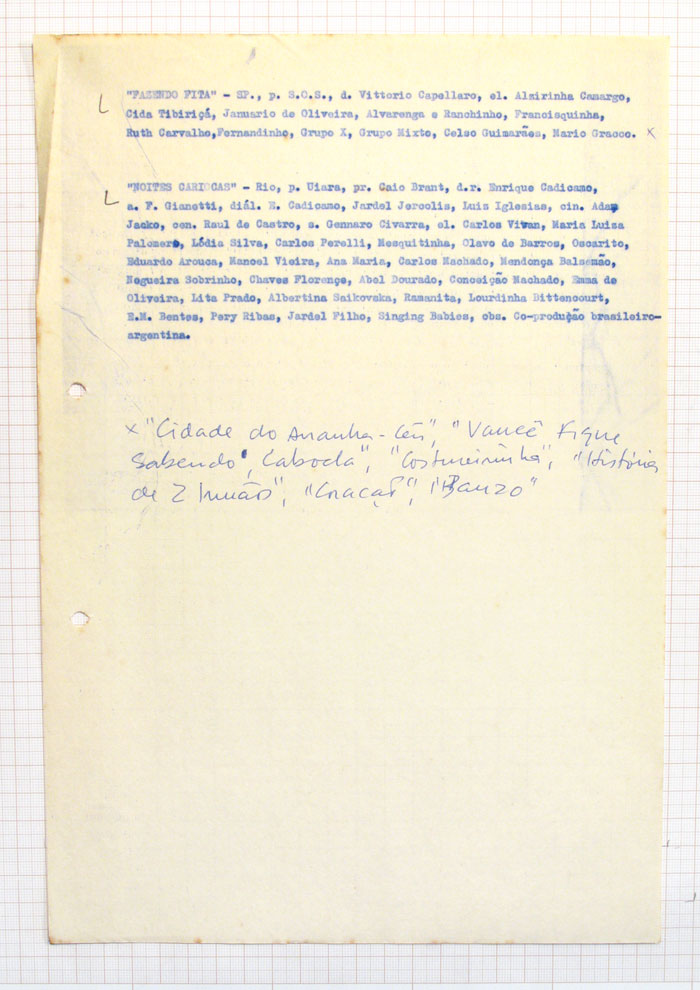 "FAZENDO FITA" - SP., p. S.O.S., d. Vittorio Capellaro, el. Almirinha Camargo,
Cida Tibiriçá, Januario de Oliveira, Alvarenga e Ranchinho, Francisquinha,
Ruth Carvalho,Fernandinho, Grupo X, Grupo Mixto, Celso Guimarães, Mario Gracco. x
"NOITES CARIOCAS" - Rio, p. Uiara, pr. Caio Brant, d.r. Enrique Cadicamo,
a. F. Gianetti, diál. E. Cadicamo, Jardel Jercolis, Luis Iglesias, cin. Adam
Jacko, cen. Raul de Castro, s. Gennaro Civarra, el. Carlos Vivan, Maria Luisa
Palomero, Lódia Silva, Carlos Perelli, Mesquitinha, Olavo de Barros, Oscarito,
Eduardo Arouca, Manoel Vieira, Ana Maria, Carlos Machado, Mendonça Balsemão,
Nogueira Sobrinho, Chaves Florençe, Abel Dourado, Conceição Machado, Emma de
Oliveira, Lita Prado, Albertina Saikovska, Ramanita, Lourdinha Bittencourt,
E.M. Bentes, Pery Ribas, Jardel Filho, Singing Babies, obs. Co-produção brasileiro-
argentina.
x "Cidade do Arranha-Céu", "Vancê Fique
Sabendo", Cabocla", "Costureirinha", "História
de 2 Irmãos", "Coração", "Banzo"